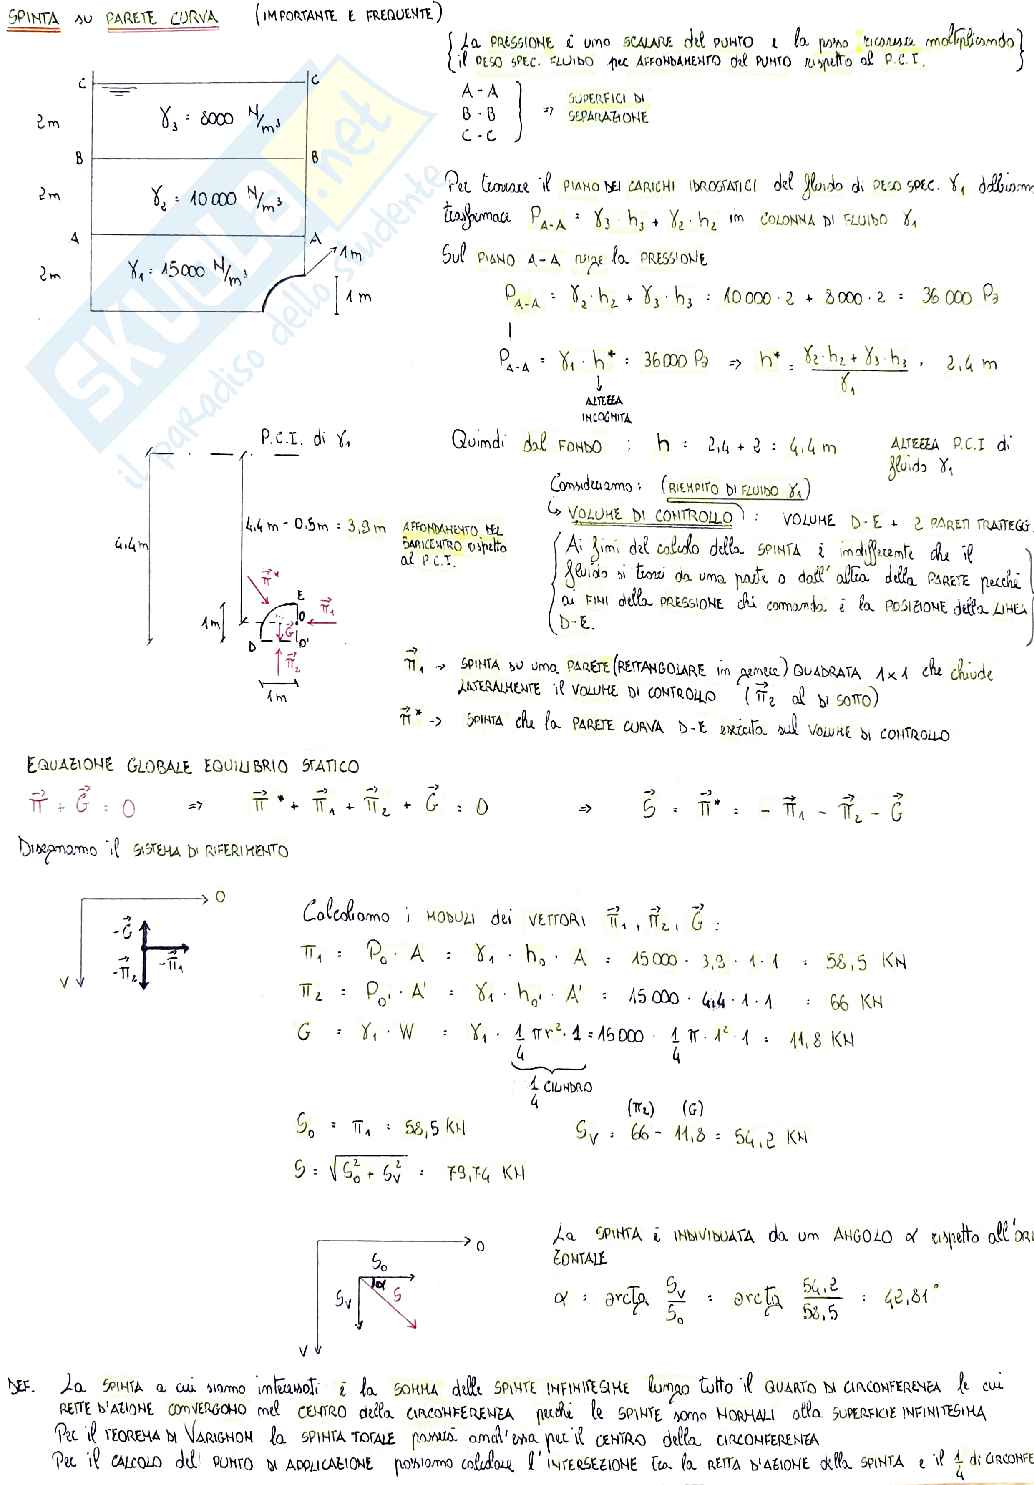 SPINTA SU PARETE CURVA (IMPORTANTE E FREQUENTE)
{ La PRESSIONE è uno SCALARE del PUNTO e la posso ricavare moltiplicando }
{ il PESO SPEC. FLUIDO per AFFONDAMENTO del PUNTO rispetto al P.C.I. }
C C
2m γ₃ = 8000 N/m³
B B
2m γ₂ = 10000 N/m³
A A
2m γ₁ = 15000 N/m³
1m
1m
A - A
B - B
C - C
⇒ SUPERFICI DI
SEPARAZIONE
Per trovare il PIANO DEI CARICHI IDROSTATICI del fluido di PESO SPEC. γ₁ dobbiamo
trasformare P_A-A = γ₃ · h₃ + γ₂ · h₂ in COLONNA DI FLUIDO γ₁
Sul PIANO A-A vige la PRESSIONE
P_A-A = γ₂ · h₂ + γ₃ · h₃ = 10000 · 2 + 8000 · 2 = 36000 Pa
P_A-A = γ₁ · h* = 36000 Pa ⇒ h* = (γ₂ · h₂ + γ₃ · h₃) / γ₁ = 2,4 m
ALTEZZA
INCOGNITA
Quindi dal FONDO : h = 2,4 + 2 = 4,4 m ALTEZZA P.C.I di
fluido γ₁
P.C.I. di γ₁
4,4m
4,4m - 0,5m = 3,9m AFFONDAMENTO DEL
BARICENTRO rispetto
al P.C.I.
π⃗*
E
O
π⃗₁
1m
G⃗
D
O'
π⃗₂
1m
Consideriamo: (RIEMPITO DI FLUIDO γ₁)
↳ VOLUME DI CONTROLLO : VOLUME D-E + 2 PARETI TRATTEGG.
{ Ai fini del calcolo della SPINTA è indifferente che il
fluido si trovi da una parte o dall'altra della PARETE perché
ai FINI della PRESSIONE chi comanda è la POSIZIONE della LINEA
D-E. }
π⃗₁ → SPINTA SU una PARETE (RETTANGOLARE in genere) QUADRATA 1x1 che chiude
LATERALMENTE il VOLUME DI CONTROLLO (π⃗₂ al DI SOTTO)
π⃗* → SPINTA che la PARETE CURVA D-E esercita sul VOLUME DI CONTROLLO
EQUAZIONE GLOBALE EQUILIBRIO STATICO
π⃗ + G⃗ = 0 ⇒ π⃗* + π⃗₁ + π⃗₂ + G⃗ = 0 ⇒ S⃗ = π⃗* = - π⃗₁ - π⃗₂ - G⃗
Disegnamo il SISTEMA DI RIFERIMENTO
O
-G⃗
-π⃗₂
-π⃗₁
V
Calcoliamo i MODULI dei VETTORI π⃗₁, π⃗₂, G⃗ :
π₁ = P₀ · A = γ₁ · h₀ · A = 15000 · 3,9 · 1 · 1 = 58,5 KN
π₂ = P₀' · A' = γ₁ · h₀' · A' = 15000 · 4,4 · 1 · 1 = 66 KN
G = γ₁ · W = γ₁ · 1/4 πr² · 1 = 15000 · 1/4 π · 1² · 1 = 11,8 KN
1/4 CILINDRO
S₀ = π₁ = 58,5 KN
(π₂) (G)
S_V = 66 - 11,8 = 54,2 KN
S = √(S₀² + S_V²) = 79,74 KN
O
S₀
α
S_V
S
V
La SPINTA è INDIVIDUATA da un ANGOLO α rispetto all'ORI
ZONTALE
α = arctg S_V/S₀ = arctg 54,2/58,5 = 42,81°
DEF. La SPINTA a cui siamo interessati è la SOMMA delle SPINTE INFINITESIME lungo tutto il QUARTO DI CIRCONFERENZA le cui
RETTE D'AZIONE CONVERGONO nel CENTRO della CIRCONFERENZA perché le SPINTE sono NORMALI alla SUPERFICIE INFINITESIMA
Per il TEOREMA DI VARIGNON la SPINTA TOTALE passerà anch'essa per il CENTRO della CIRCONFERENZA
Per il CALCOLO del PUNTO DI APPLICAZIONE possiamo calcolare l'INTERSEZIONE tra la RETTA D'AZIONE della SPINTA e il 1/4 di CIRCONFE
SKUOLA.net
il paradiso dello studente